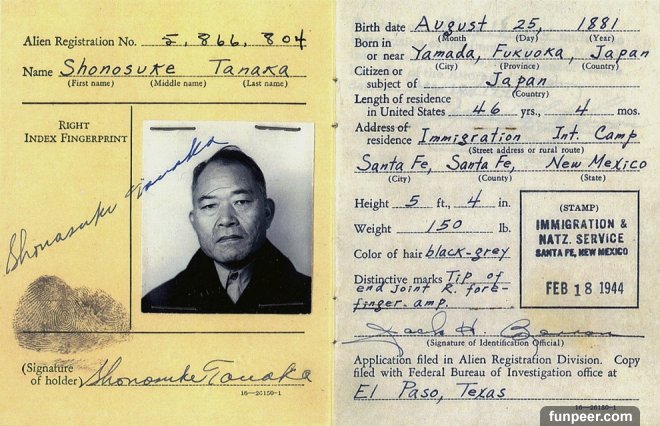 Alien Registration No. 5,866,804
Name Shonosuke Tanaka
(First name) (Middle name) (Last name)
RIGHT
INDEX FINGERPRINT
Shonosuke Tanaka
(Signature
of holder) Shonosuke Tanaka
16—26150-1
Birth date August 25, 1881
(Month (Day) (Year)
Born in
or near Yamada, Fukuoka, Japan
(City) (Province) (Country)
Citizen or
subject of Japan
(Country)
Length of residence
in United States 46 yrs., 4 mos.
Address of
residence Immigration Int. Camp
(Street address or rural route)
Santa Fe, Santa Fe, New Mexico
(City) (County) (State)
Height 5 ft., 4 in.
Weight 150 lb.
Color of hair black-grey
Distinctive marks Tip of
end joint R. fore-
finger amp.
(STAMP)
IMMIGRATION &
NATZ. SERVICE
SANTA FE, NEW MEXICO
FEB 18 1944
H.
(Signature of Identification Official)
Application filed in Alien Registration Division. Copy
filed with Federal Bureau of Investigation office at
El Paso, Texas
16—26150-1
funpeer.com